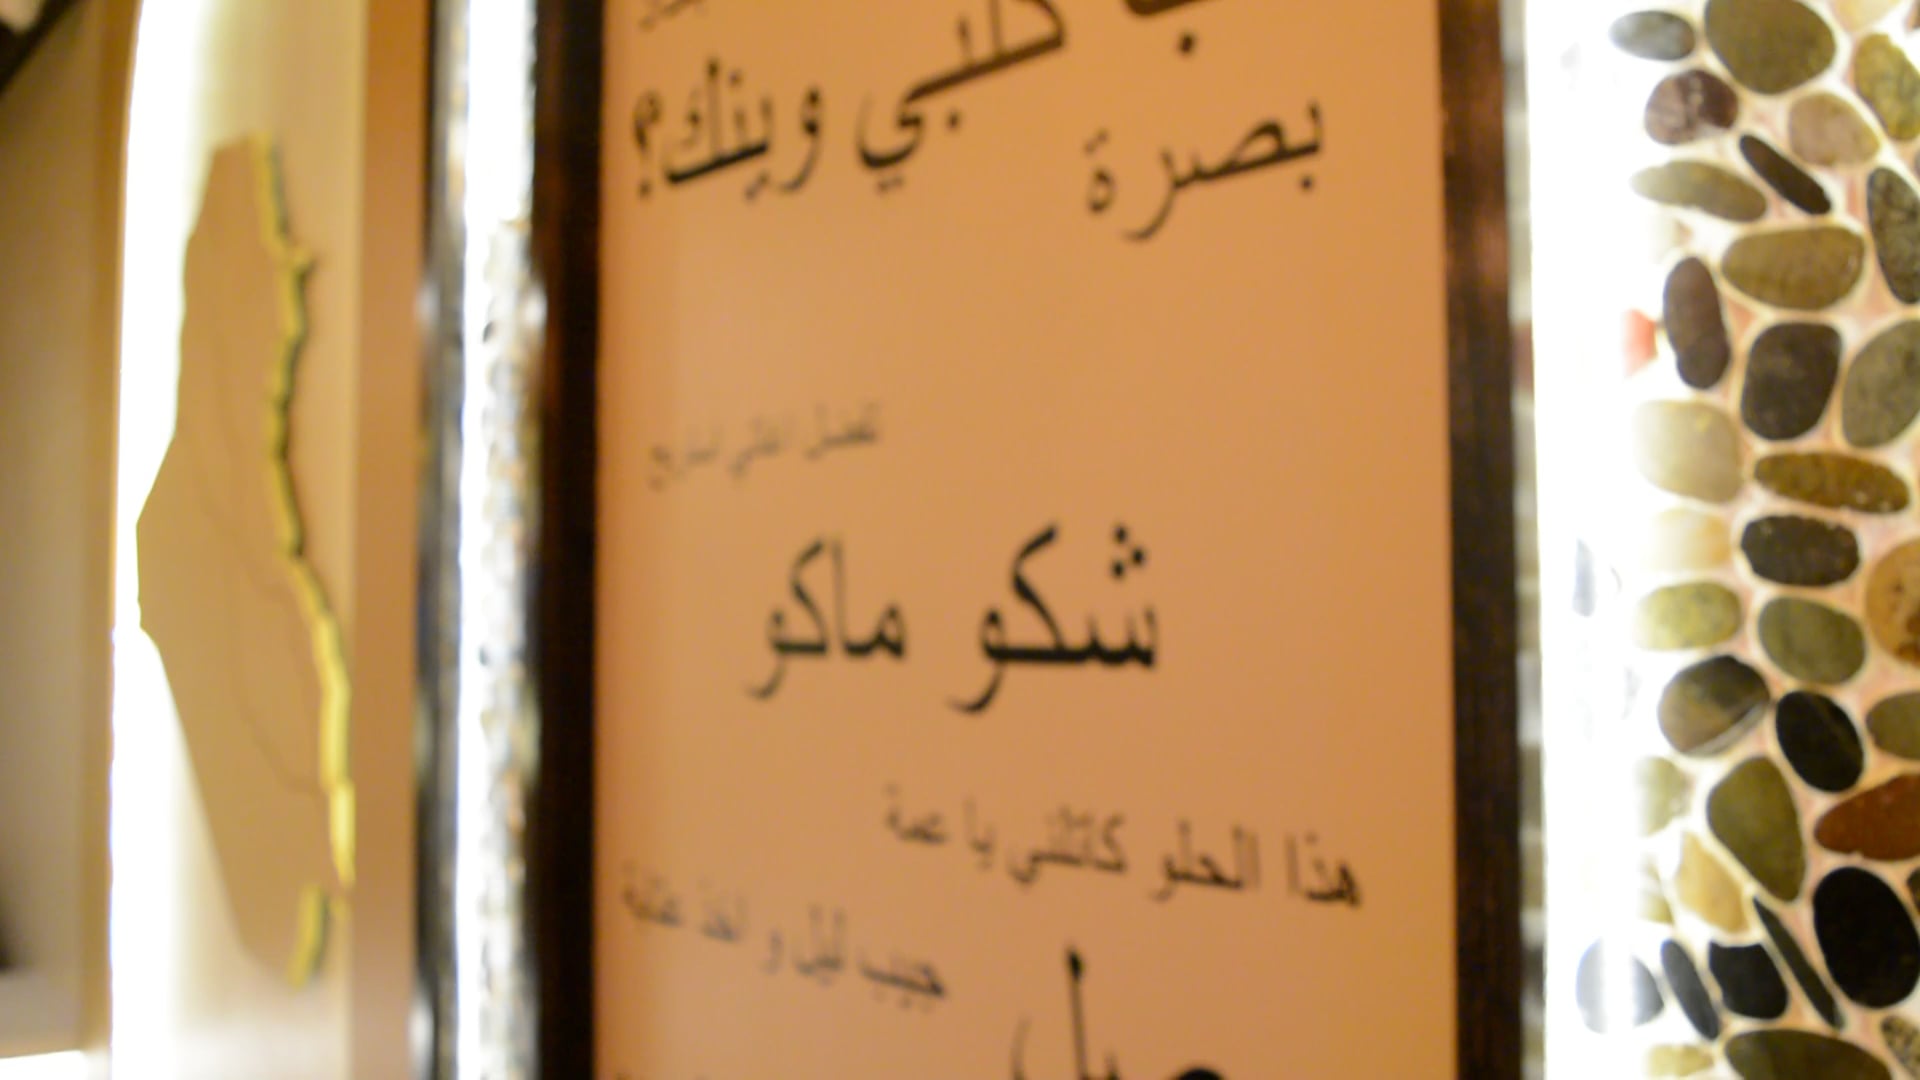 كلبي وينك؟
بصرة
تفضل اغاتي استريح
شكو ماكو
هذا الحلو كاتلني يا عمة
جيب ليل و اخذ عتابة